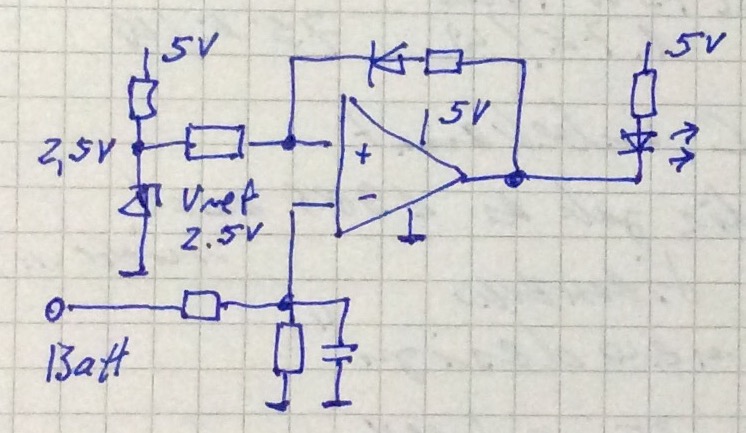 5V
5V
5V
2,5V
+
-
Vref
2.5V
Batt